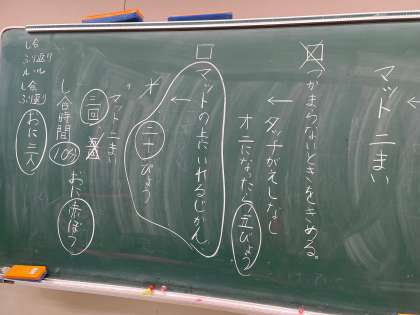 マット 二まい
←
つかまらないときをきめる。
← タッチがえしなし
オニになったら 五びょう
マットの上にいれるじかん
← 二十びょう
オ
マット 二まい
三回
し合時間 10分
おに赤ぼう
し合
ふり返り
ルール
し合
ふり返り
おに 三人